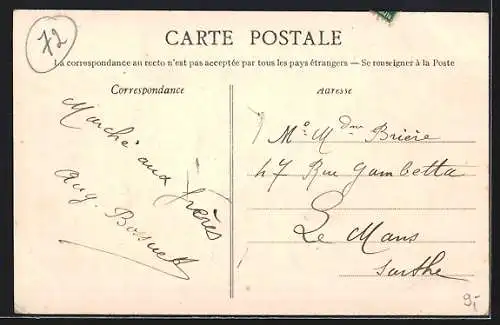 72
CARTE POSTALE
La correspondance au recto n'est pas acceptée par tous les pays étrangers — Se renseigner à la Poste
Correspondance
Marché aux
frères
Aug. Bossuet
Adresse
Mr Mdme Brière
47 Rue Gambetta
Le Mans
Sarthe
9,-